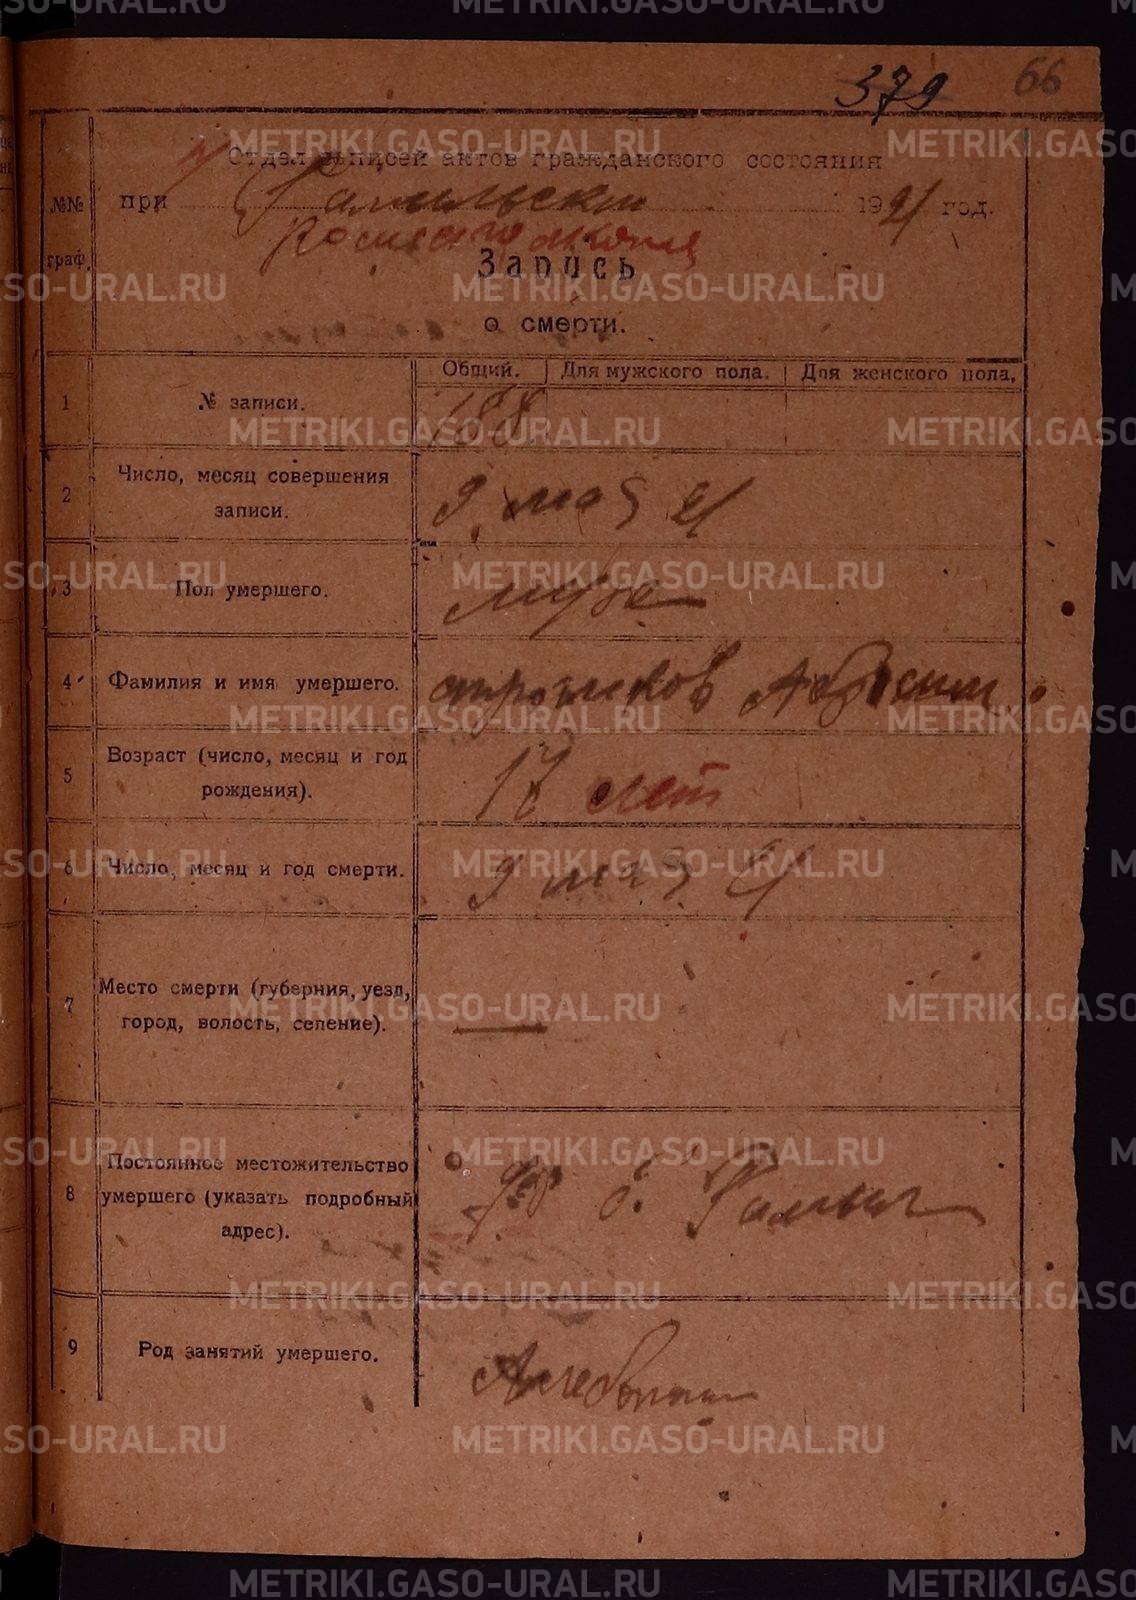 379 66
Отдел записей актов гражданского состояния
№№ граф.
при 1921 год.
Запись
о смерти.
Общий. Для мужского пола. Для женского пола.
1 № записи. 188
2 Число, месяц совершения записи. 9 мая 21
3 Пол умершего. муже
4 Фамилия и имя умершего.
5 Возраст (число, месяц и год рождения). 17 лет
6 Число, месяц и год смерти. 9 мая 21
7 Место смерти (губерния, уезд, город, волость, селение). —
8 Постоянное местожительство умершего (указать подробный адрес).
9 Род занятий умершего.
METRIKI.GASO-URAL.RU